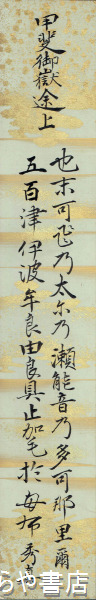 甲斐御獄途上
也末可飛乃太尓乃瀬能音乃多可那里爾
五百津伊波牟良由良具止加毛於母布 秀真
らや書店